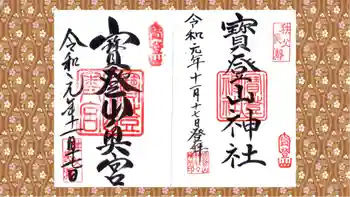 秩父
長瀞
寳登山神社
令和元年十一月十七日登拝
寳登山
寳登山奥宮
令和元年十一月十七日